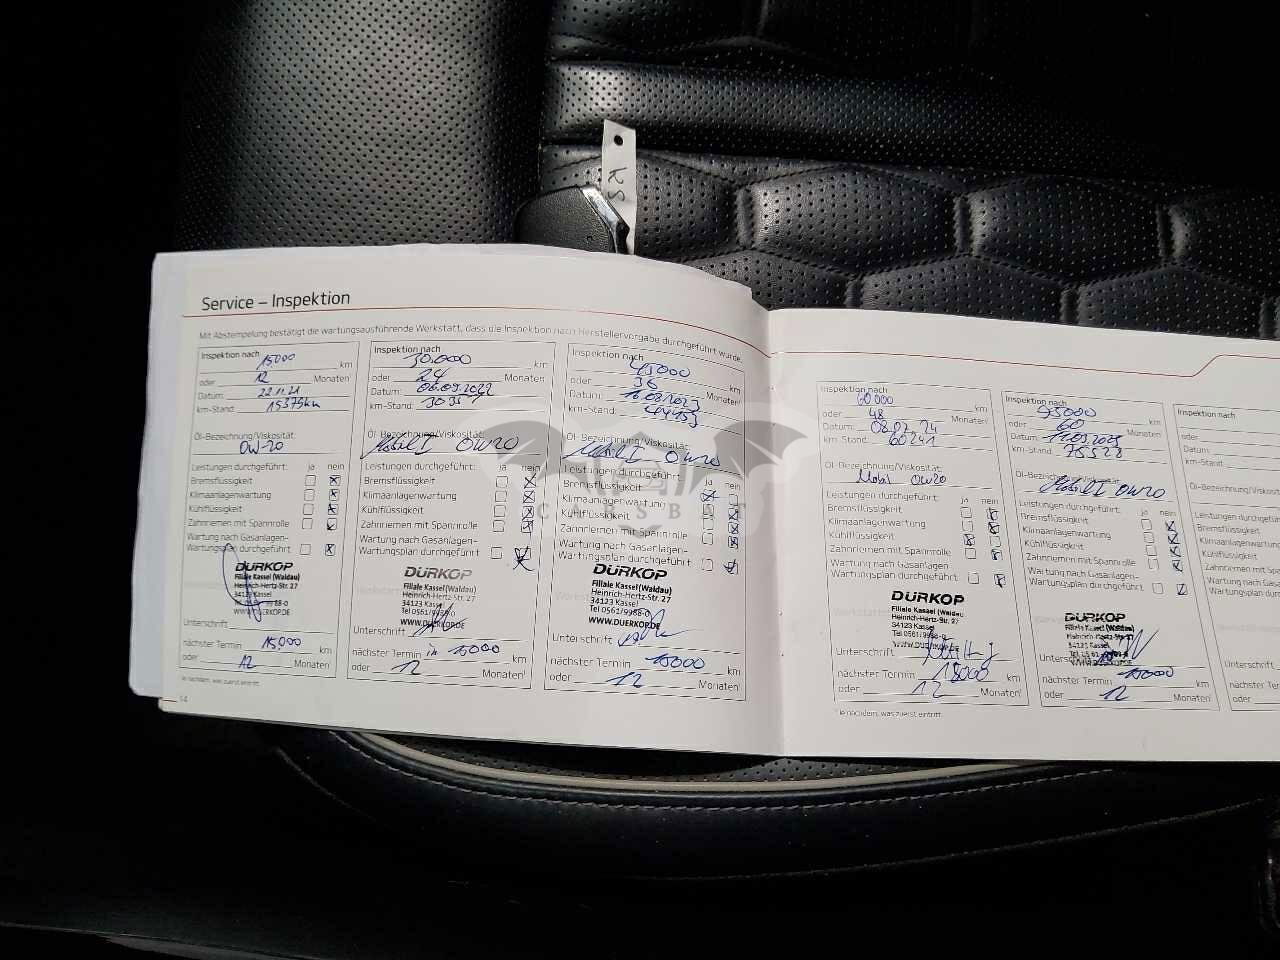 KS
Service – Inspektion
Mit Abstempelung bestätigt die wartungsausführende Werkstatt, dass die Inspektion nach Herstellervorgabe durchgeführt wurde.
Inspektion nach
15.000 km
oder 12 Monaten¹
Datum: 22.11.21
km-Stand: 15375km
Öl-Bezeichnung/Viskosität:
0W-20
Leistungen durchgeführt: ja nein
Bremsflüssigkeit
Klimaanlagenwartung
Kühlflüssigkeit
Zahnriemen mit Spannrolle
Wartung nach Gasanlagen-
Wartungsplan durchgeführt
DÜRKOP
Filiale Kassel (Waldau)
Heinrich-Hertz-Str. 27
34123 Kassel
WWW.DUERKOP.DE
Unterschrift
nächster Termin 15.000 km
oder 12 Monaten¹
¹ Je nachdem, was zuerst eintritt.
14
Inspektion nach
30.000 km
oder 24 Monaten¹
Datum: 06.09.2022
km-Stand:
Öl-Bezeichnung/Viskosität:
Mobil 1 0W20
Leistungen durchgeführt: ja nein
Bremsflüssigkeit
Klimaanlagenwartung
Kühlflüssigkeit
Zahnriemen mit Spannrolle
Wartung nach Gasanlagen-
Wartungsplan durchgeführt
DÜRKOP
Filiale Kassel (Waldau)
Heinrich-Hertz-Str. 27
34123 Kassel
WWW.DUERKOP.DE
Unterschrift
nächster Termin in 15000 km
oder 12 Monaten¹
Inspektion nach
45000 km
oder 36 Monaten¹
Datum: 16.08.2023
km-Stand:
Öl-Bezeichnung/Viskosität:
Mobil 1 0W20
Leistungen durchgeführt: ja nein
Bremsflüssigkeit
Klimaanlagenwartung
Kühlflüssigkeit
Zahnriemen mit Spannrolle
Wartung nach Gasanlagen-
Wartungsplan durchgeführt
DÜRKOP
Filiale Kassel (Waldau)
Heinrich-Hertz-Str. 27
34123 Kassel
Tel 0561/9988-0
WWW.DUERKOP.DE
Unterschrift
nächster Termin 15000 km
oder 12 Monaten¹
CARSBAT
Inspektion nach
60.000 km
oder 48 Monaten¹
Datum: 08.07.24
km-Stand: 60241
Öl-Bezeichnung/Viskosität:
Mobil 0W20
Leistungen durchgeführt: ja nein
Bremsflüssigkeit
Klimaanlagenwartung
Kühlflüssigkeit
Zahnriemen mit Spannrolle
Wartung nach Gasanlagen-
Wartungsplan durchgeführt
DÜRKOP
Filiale Kassel (Waldau)
Heinrich-Hertz-Str. 27
34123 Kassel
Tel 0561/9988-0
WWW.DUERKOP.DE
Unterschrift
nächster Termin 15000 km
oder 12 Monaten¹
¹ Je nachdem, was zuerst eintritt.
Inspektion nach
km
oder 60 Monaten¹
Datum:
km-Stand: 75528
Öl-Bezeichnung/Viskosität:
Mobil 1 0W20
Leistungen durchgeführt: ja nein
Bremsflüssigkeit
Klimaanlagenwartung
Kühlflüssigkeit
Zahnriemen mit Spannrolle
Wartung nach Gasanlagen-
Wartungsplan durchgeführt
DÜRKOP
Filiale Kassel (Waldau)
Heinrich-Hertz-Str. 27
34123 Kassel
Unterschrift
nächster Termin 15000 km
oder 12 Monaten¹
Inspektion nach
oder
Datum:
km-Stand:
Öl-Bezeichnung/Viskosität
Leistungen durchgeführt:
Bremsflüssigkeit
Klimaanlagenwartung
Kühlflüssigkeit
Zahnriemen mit Spann
Wartung nach Gasa
Wartungsplan durc
Unterschrift
nächster Termin
oder